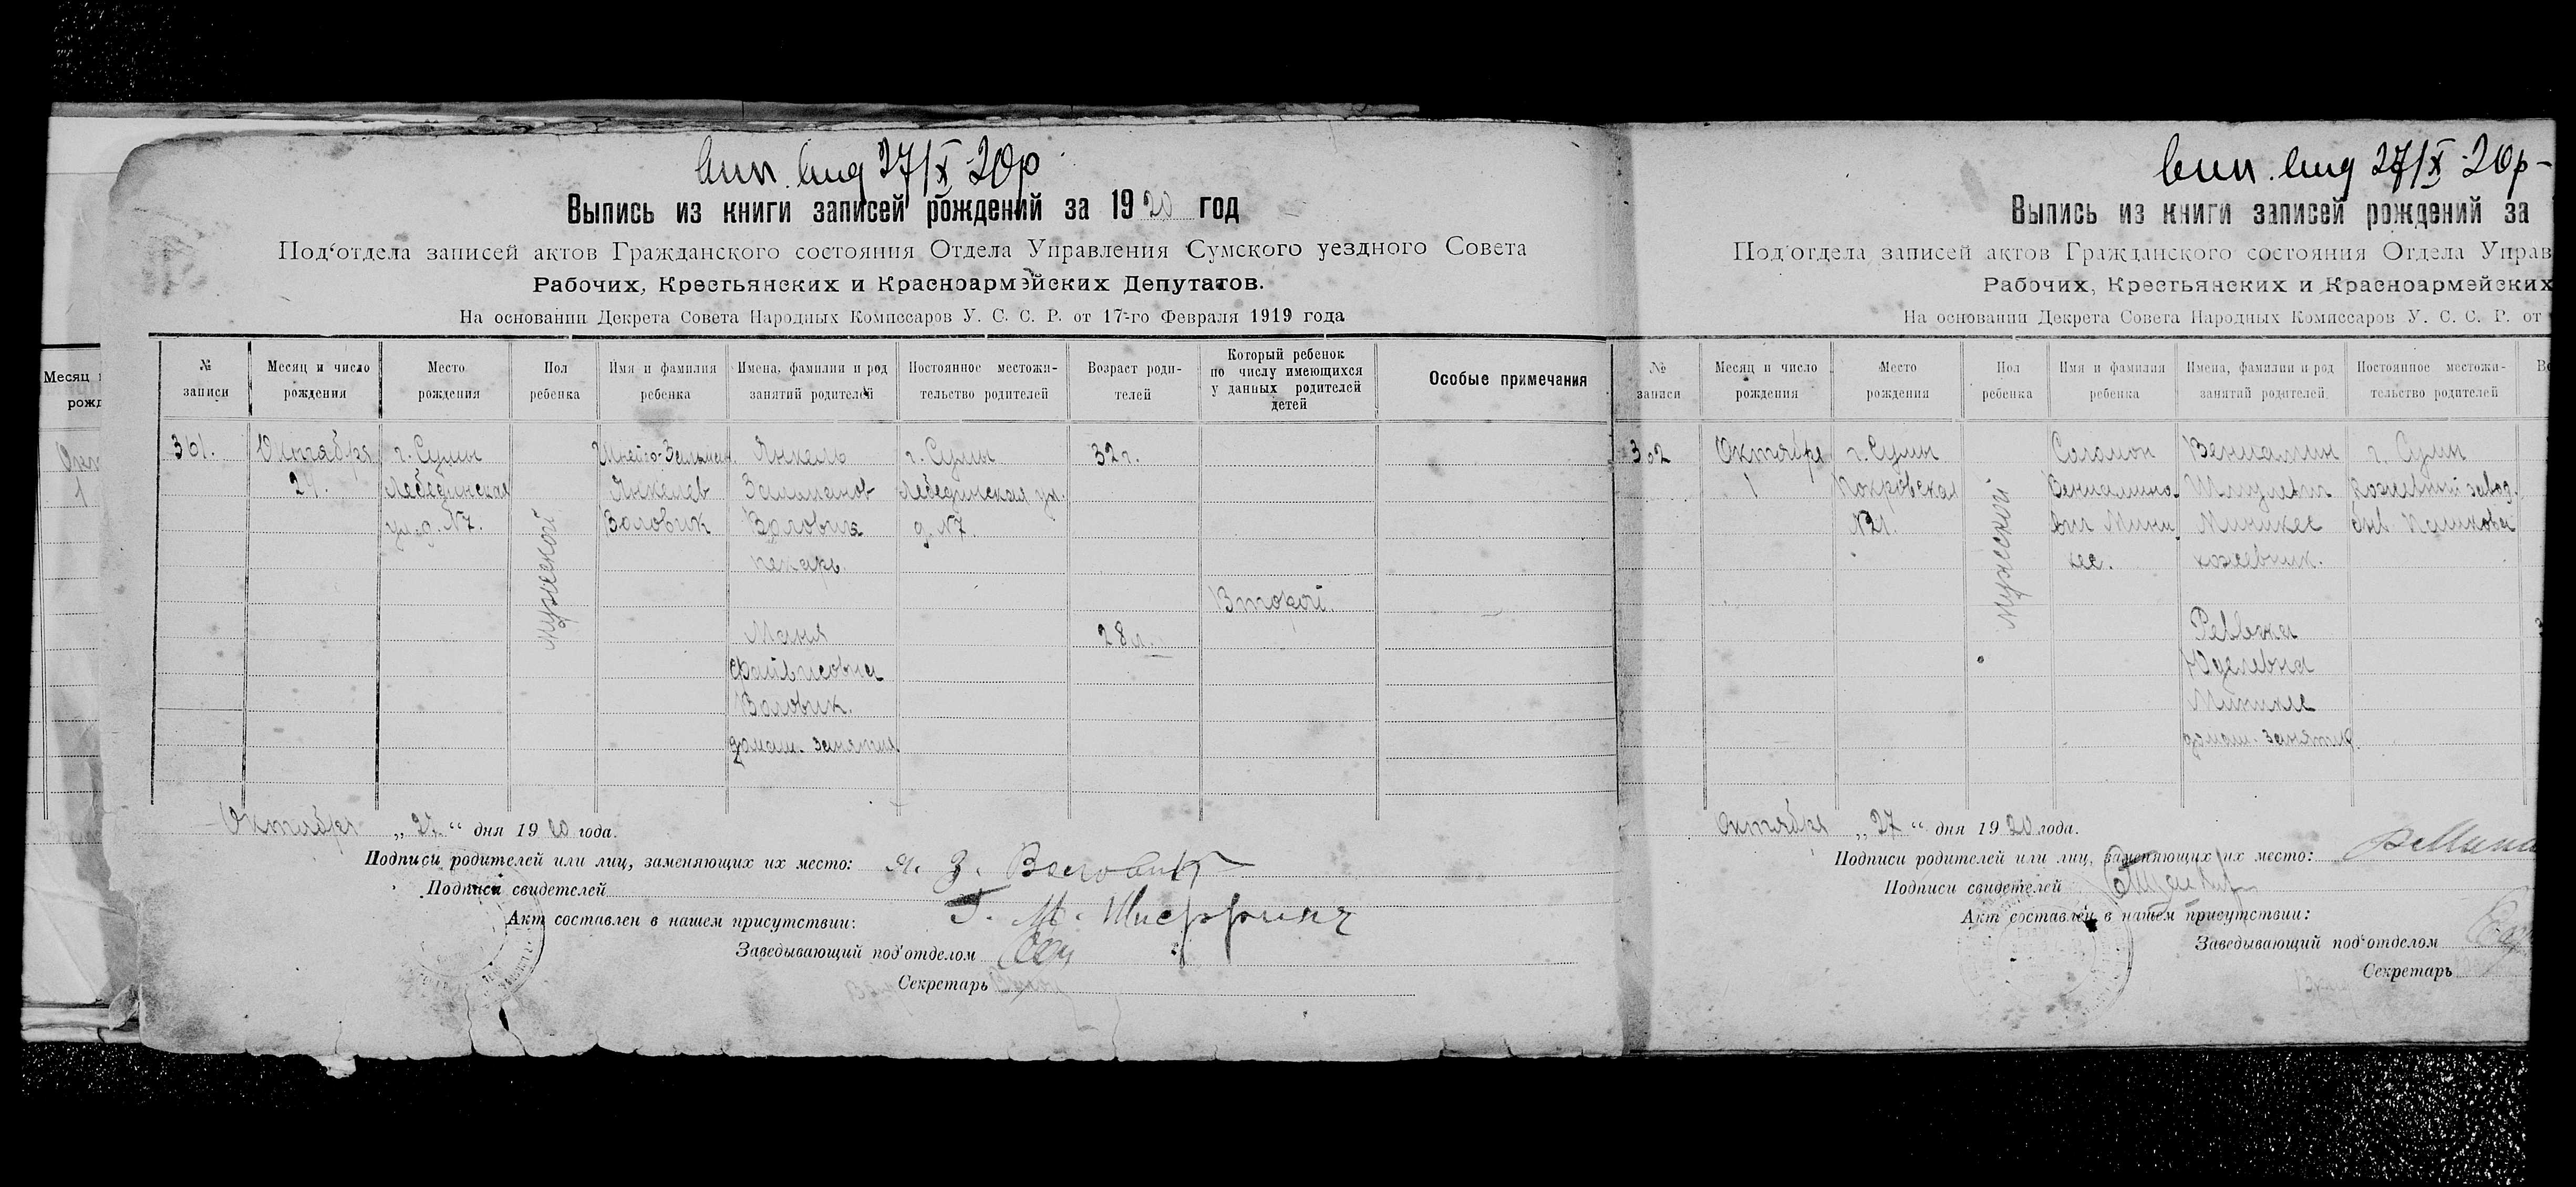 Вип. вид 27/X 20р
Выпись из книги записей рождений за 1920 год
Под'отдела записей актов Гражданского состояния Отдела Управления Сумского уездного Совета
Рабочих, Крестьянских и Красноармейских Депутатов.
На основании Декрета Совета Народных Комиссаров У. С. С. Р. от 17-го Февраля 1919 года
№ записи
Месяц и число рождения
Место рождения
Пол ребенка
Имя и фамилия ребенка
Имена, фамилии и род занятий родителей
Постоянное местожительство родителей
Возраст родителей
Который ребенок по числу имеющихся у данных родителей детей
Особые примечания
301.
Октября
24.
г. Сумы
Лебединская
ул. д. №7.
мужеской
Янкелев
Воловик
Янкель
Залманов
Воловик
пекарь
г. Сумы
Лебединская ул.
д. №7.
32 г.
Второй.
Маня
Файвисовна
Воловик.
домаш. занятия
28 л.
Октября „27“ дня 1920 года.
Подписи родителей или лиц, заменяющих их место: Я. З. Воловик
Подписи свидетелей
Акт составлен в нашем присутствии:
Г. М. Шифрин
Заведывающий под'отделом
Секретарь
Вип. вид 27/X 20р
Выпись из книги записей рождений за
Под'отдела записей актов Гражданского состояния Отдела Управ
Рабочих, Крестьянских и Красноармейских
На основании Декрета Совета Народных Комиссаров У. С. С. Р. от
№ записи
Месяц и число рождения
Место рождения
Пол ребенка
Имя и фамилия ребенка
Имена, фамилии и род занятий родителей
Постоянное местожительство родителей
302
Октября
1
г. Сумы
Покровская
№21.
мужеской
Соломон
Вениамино
вич Мини
кес.
Вениамин
Шмулевич
Миникес
кожевник.
г. Сумы
Кожевный завод
быв. Пашкова
Ревека
Юделевна
Миникес
домаш. занятия.
Октября „27“ дня 1920 года.
Подписи родителей или лиц, заменяющих их место:
Подписи свидетелей
Акт составлен в нашем присутствии:
Заведывающий под'отделом
Секретарь
Месяц
рожд
Окт
1